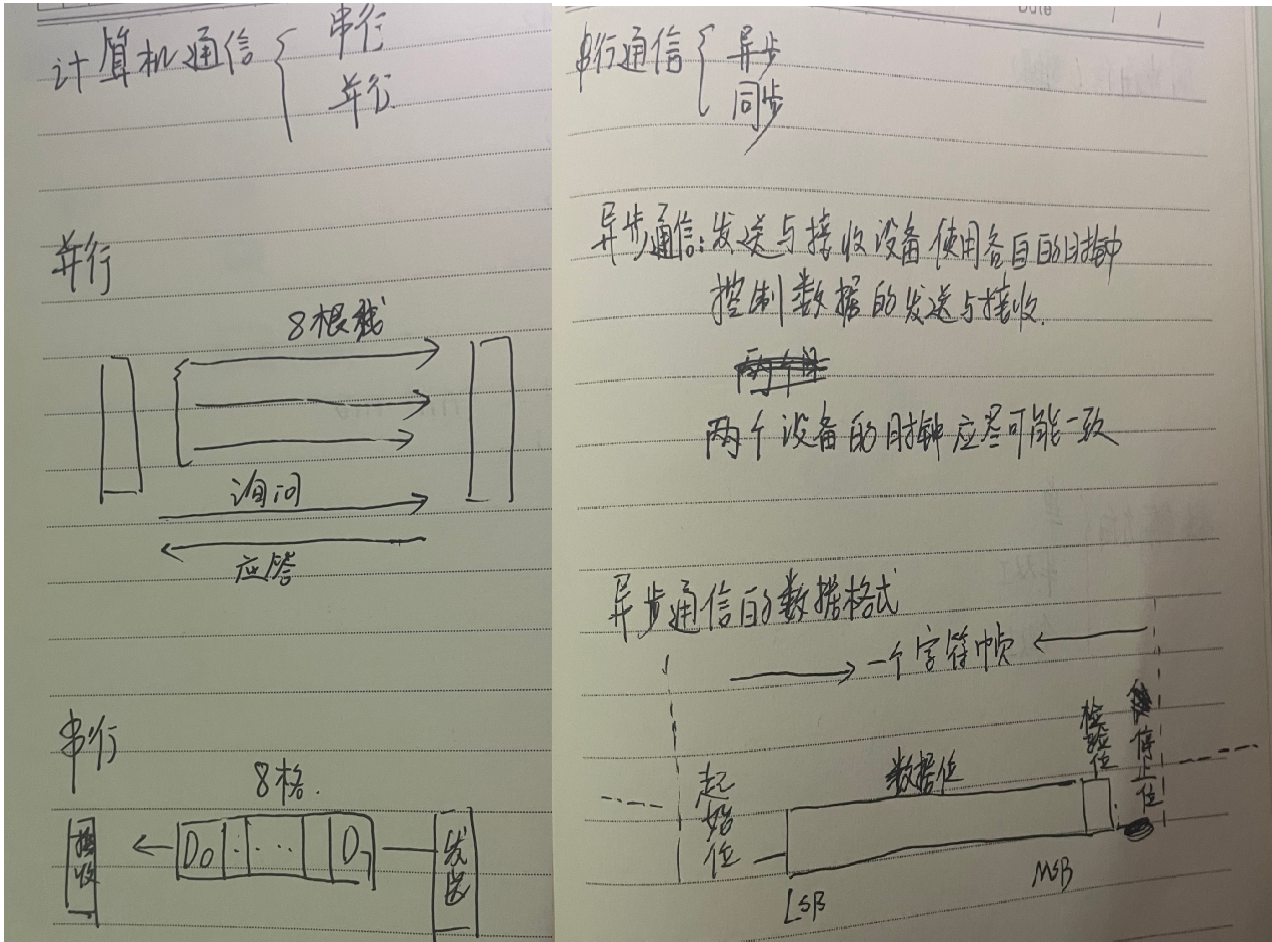 计算机通信 { 串行
并行
并行
8根线
询问
应答
串行
8格.
接收
D0 ... D7
发送
Date
串行通信 { 异步
同步
异步通信:发送与接收设备使用各自的时钟
控制数据的发送与接收.
两个设备的时钟应尽可能一致
异步通信的数据格式
一个字符帧
起始位
数据位
检验位
停止位
LSB
MSB